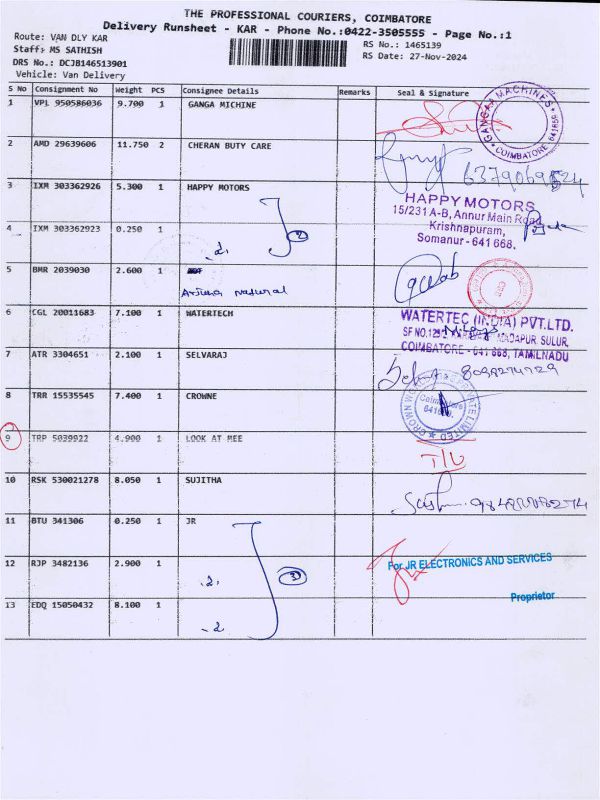 THE PROFESSIONAL COURIERS, COIMBATORE
Delivery Runsheet - KAR - Phone No.:0422-3505555 - Page No.:1
Route: VAN DLY KAR
Staff: MS SATHISH
DRS No.: DCJB146513901
Vehicle: Van Delivery
RS No.: 1465139
RS Date: 27-Nov-2024
S No Consignment No Weight PCS Consignee Details Remarks Seal & Signature
1 VPL 950586036 9.700 1 GANGA MICHINE
GANGAA MACHINES
COIMBATORE 641659
2 AMD 29639606 11.750 2 CHERAN BUTY CARE
3 IXM 303362926 5.300 1 HAPPY MOTORS
HAPPY MOTORS
15/231 A-B, Annur Main Road
Krishnapuram,
Somanur - 641 668.
4 IXM 303362923 0.250 1
2
5 BMR 2039030 2.600 1
Arjuna natural
6 CGL 20011683 7.100 1 WATERTECH
WATERTEC (INDIA) PVT.LTD.
MADAPUR, SULUR.
COIMBATORE - 641 668, TAMILNADU
7 ATR 3304651 2.100 1 SELVARAJ
8 TRR 15535545 7.400 1 CROWNE
9 TRP 5039922 4.900 1 LOOK AT MEE
10 RSK 530021278 8.050 1 SUJITHA
11 BTU 341306 0.250 1 JR
12 RJP 3482136 2.900 1
3
For JR ELECTRONICS AND SERVICES
Proprietor
13 EDQ 15050432 8.100 1